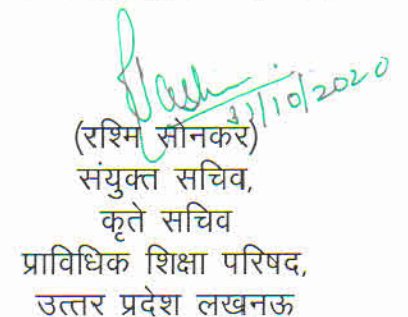 Rashmi
31/10/2020
(रश्मि सोनकर)
संयुक्त सचिव,
कृते सचिव
प्राविधिक शिक्षा परिषद,
उत्तर प्रदेश लखनऊ